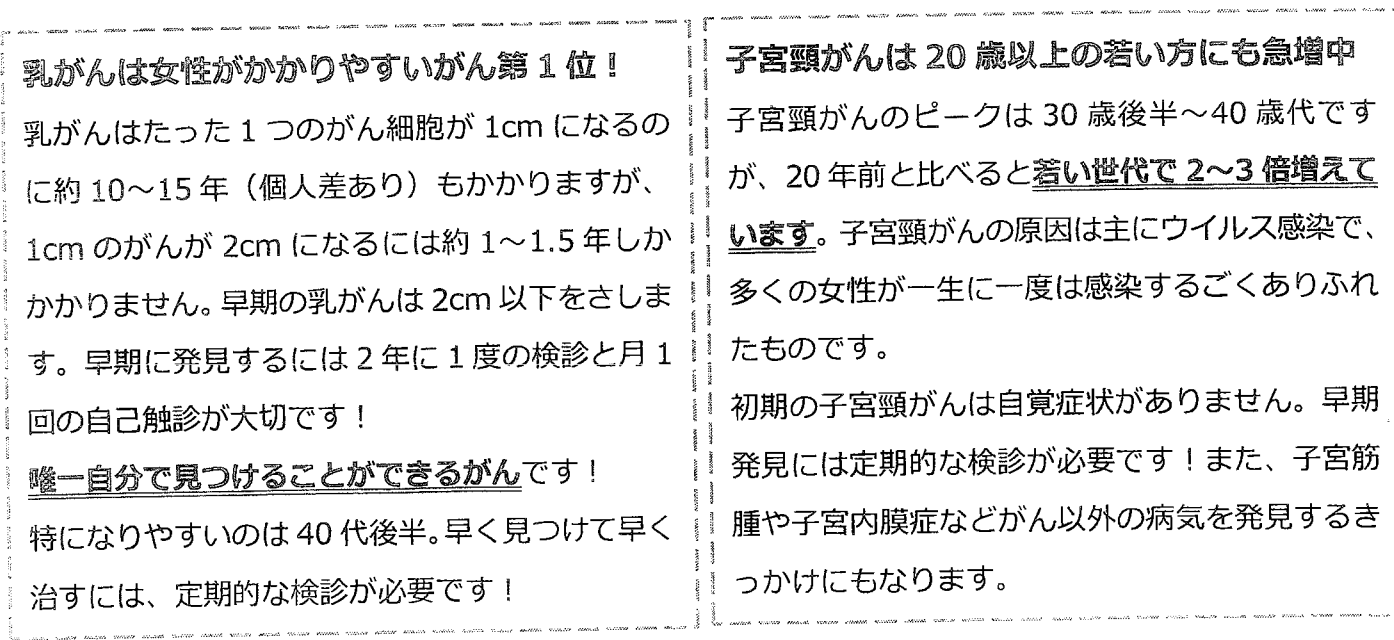 乳がんは女性がかかりやすいがん第1位！
乳がんはたった1つのがん細胞が1cmになるの
に約10～15年（個人差あり）もかかりますが、
1cmのがんが2cmになるには約1～1.5年しか
かかりません。早期の乳がんは2cm以下をさしま
す。早期に発見するには2年に1度の検診と月1
回の自己触診が大切です！
唯一自分で見つけることができるがんです！
特になりやすいのは40代後半。早く見つけて早く
治すには、定期的な検診が必要です！
子宮頸がんは20歳以上の若い方にも急増中
子宮頸がんのピークは30歳後半～40歳代です
が、20年前と比べると若い世代で2～3倍増えて
います。子宮頸がんの原因は主にウイルス感染で、
多くの女性が一生に一度は感染するごくありふれ
たものです。
初期の子宮頸がんは自覚症状がありません。早期
発見には定期的な検診が必要です！また、子宮筋
腫や子宮内膜症などがん以外の病気を発見するき
っかけにもなります。